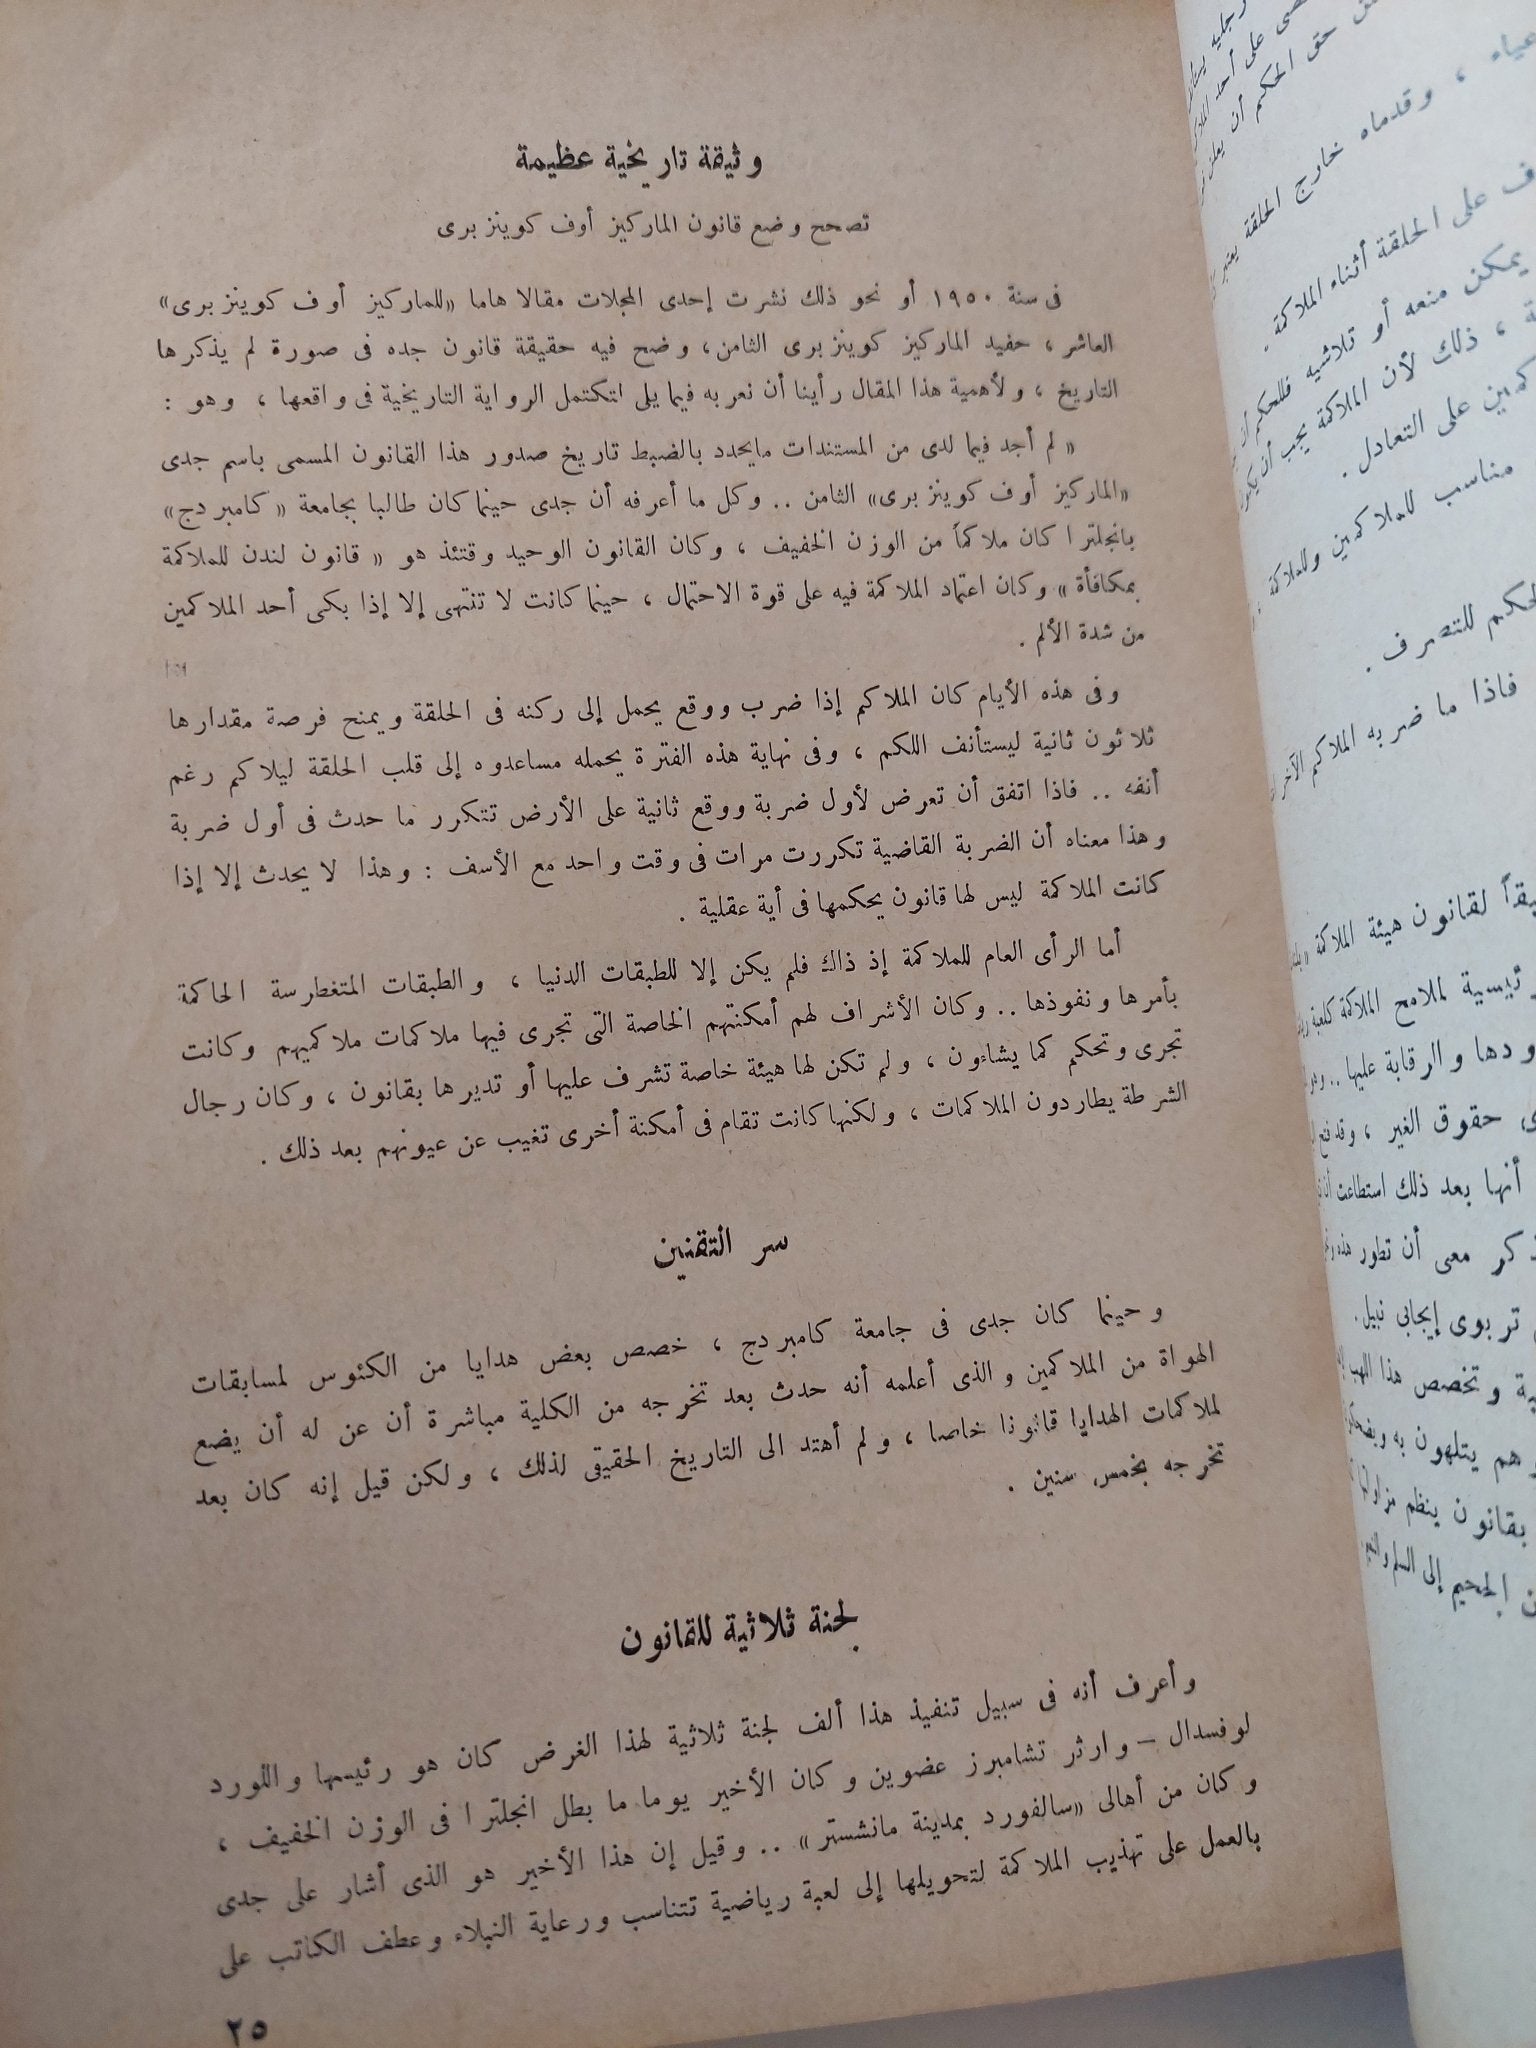 وثيقة تاريخية عظيمة
تصحح وضع قانون الماركيز أوف كوينز برى
فى سنة ١٩٥٠ أو نحو ذلك نشرت إحدى المجلات مقالا هاما «للماركيز أوف كوينز برى»
العاشر ، حفيد الماركيز كوينز برى الثامن، وضح فيه حقيقة قانون جده فى صورة لم يذكرها
التاريخ ، ولأهمية هذا المقال رأينا أن نعربه فيما يلى لتكتمل الرواية التاريخية فى واقعها ، وهو :
« لم أجد فيما لدى من المستندات مايحدد بالضبط تاريخ صدور هذا القانون المسمى باسم جدى
«الماركيز أوف كوينز برى» الثامن .. وكل ما أعرفه أن جدى حينما كان طالبا بجامعة « كامبردج»
بانجلترا كان ملاكماً من الوزن الخفيف ، وكان القانون الوحيد وقتئذ هو « قانون لندن للملاكمة
بمكافأة » وكان اعتماد الملاكمة فيه على قوة الاحتمال ، حينما كانت لا تنتهى إلا إذا بكى أحد الملاكمين
من شدة الألم .
وفى هذه الأيام كان الملاكم إذا ضرب ووقع يحمل إلى ركنه فى الحلقة ويمنح فرصة مقدارها
ثلاثون ثانية ليستأنف اللكم ، وفى نهاية هذه الفترة يحمله مساعدوه إلى قلب الحلقة ليلاكم رغم
أنفه .. فاذا اتفق أن تعرض لأول ضربة ووقع ثانية على الأرض تتكرر ما حدث فى أول ضربة
وهذا معناه أن الضربة القاضية تكررت مرات فى وقت واحد مع الأسف : وهذا لا يحدث إلا إذا
كانت الملاكمة ليس لها قانون يحكمها فى أية عقلية .
أما الرأى العام للملاكمة إذ ذاك فلم يكن إلا للطبقات الدنيا ، والطبقات المتغطرسة الحاكمة
بأمرها ونفوذها .. وكان الأشراف لهم أمكنتهم الخاصة التى تجرى فيها ملاكمات ملاكميهم وكانت
تجرى وتحكم كما يشاءون ، ولم تكن لها هيئة خاصة تشرف عليها أو تديرها بقانون ، وكان رجال
الشرطة يطاردون الملاكمات ، ولكنها كانت تقام فى أمكنة أخرى تغيب عن عيونهم بعد ذلك .
سر التقنين
وحينما كان جدى فى جامعة كامبردج ، خصص بعض هدايا من الكئوس لمسابقات
الهواة من الملاكمين والذى أعلمه أنه حدث بعد تخرجه من الكلية مباشرة أن عن له أن يضع
لملاكمات الهدايا قانونا خاصا ، ولم أهتد الى التاريخ الحقيقى لذلك ، ولكن قيل إنه كان بعد
تخرجه بخمس سنين .
لجنة ثلاثية للقانون
وأعرف أنه فى سبيل تنفيذ هذا ألف لجنة ثلاثية لهذا الغرض كان هو رئيسها واللورد
لوفسدال – وارثر تشامبرز عضوين وكان الأخير يوما ما بطل انجلترا فى الوزن الخفيف ،
وكان من أهالى «سالفورد بمدينة مانشستر» .. وقيل إن هذا الأخير هو الذى أشار على جدى
بالعمل على تهذيب الملاكمة لتحويلها إلى لعبة رياضية تتناسب ورعاية النبلاء وعطف الكاتب على
٢٥
حق الحكم أن يعلن
وقدماه خارج الحلقة يعتبر
على الحلقة أثناء الملاكمة .
يمكن منعه أو تلاشيه فللحكم أن
، ذلك لأن الملاكمة يجب أن يكون
على التعادل .
مناسب للملاكمين وللملاكمة
للتصرف .
فاذا ما ضربه الملاكم الآخر
لقانون هيئة الملاكمة
لملامح الملاكمة كلعبة
والرقابة عليها ..
حقوق الغير ،
أنها بعد ذلك استطاعت
معى أن تطور هذه
تربوى إيجابى نبيل .
وتخصص هذا
هم يتلهون به
بقانون ينظم
الجحيم إلى السلم